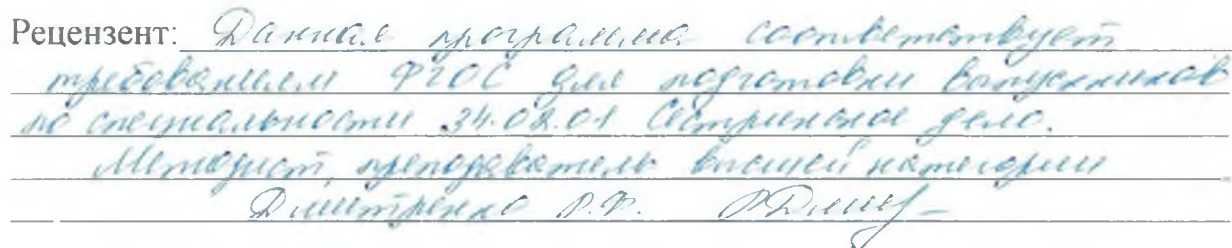 Рецензент: Данная программа соответствует
требованиям ФГОС для подготовки выпускников
по специальности 34.02.01 Сестринское дело.
Методист, преподаватель высшей категории
Дмитренко